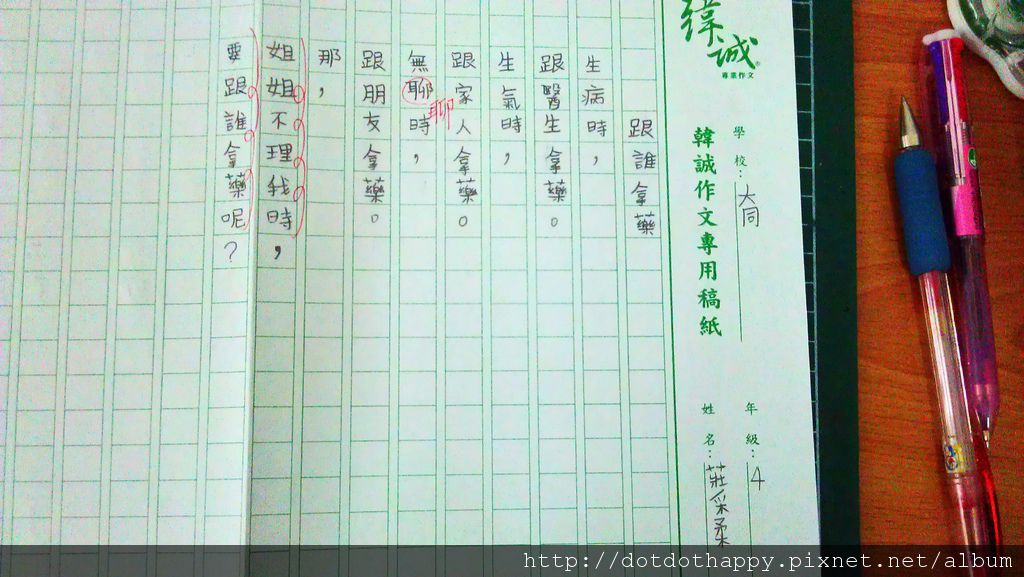 緯誠
專業作文
韓誠作文專用稿紙
學校：大同
年級：4
姓名：莊采柔
跟誰拿藥
生病時，
跟醫生拿藥。
生氣時，
跟家人拿藥。
無聊時，
聊
跟朋友拿藥。
那，
姐姐不理我時，
要跟誰拿藥呢？
http://dotdothappy.pixnet.net/album